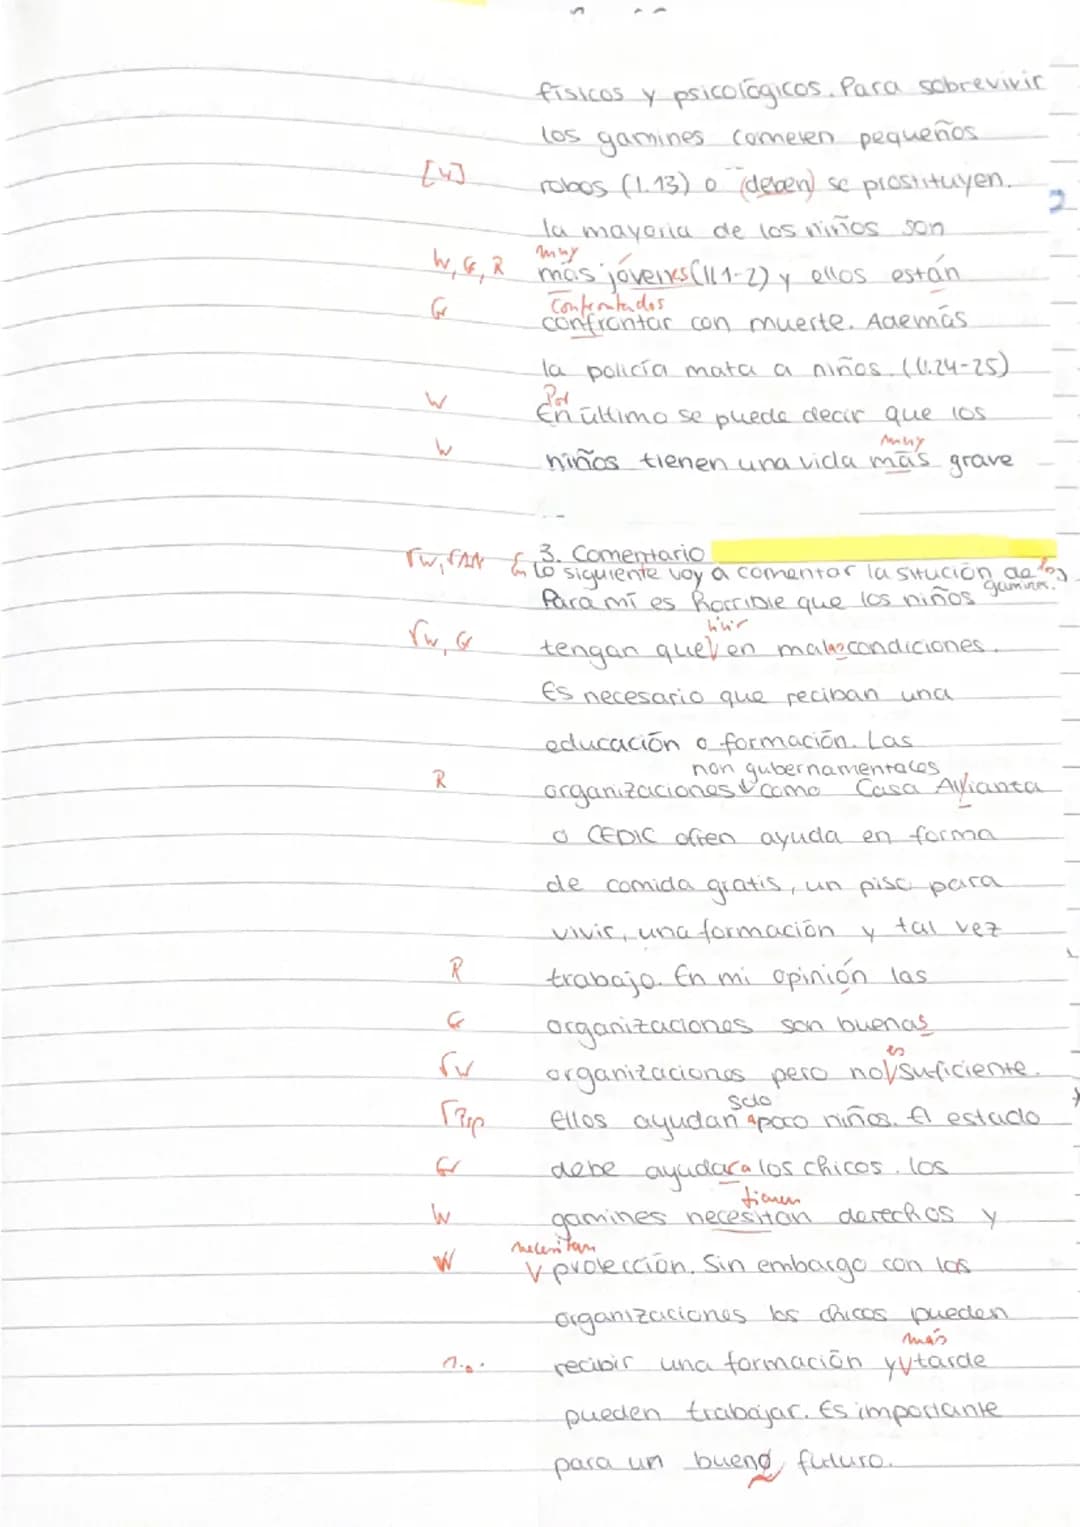 físicos y psicológicos. Para sobrevivir
los gamines cometen pequeños
[W] robos (l.13) o (deben) se prostituyen.
la mayoria de los niños son
muy
W, G, R más jóvenes (ll 1-2) y ellos están
confrontados
G confrontar con muerte. Además
la policía mata a niños. (ll.24-25)
Por
W En último se puede decir que los
muy
W niños tienen una vida más grave
3. Comentario
En lo siguiente voy a comentar la situción de los gamines.
Para mí es horrible que los niños
vivir
√W, G tengan que √ en malas condiciones.
Es necesario que reciban una
educación o formación. Las
non gubernamentales
R organizaciones √ como Casa Allianza
o CEDIC ofren ayuda en forma
de comida gratis, un piso para
vivir, una formación y tal vez
R trabajo. En mi opinión las
G organizaciones son buenas
es
√W organizaciones pero no √ suficiente.
solo
Ellos ayudan a poco niños. El estado
G debe ayudar a los chicos. los
tienen
W gamines necesitan derechos y
necesitan
W √ protección. Sin embargo con las
organizaciones los chicos pueden
más
recibir una formación y √ tarde
pueden trabajar. Es importante
para un bueno futuro.